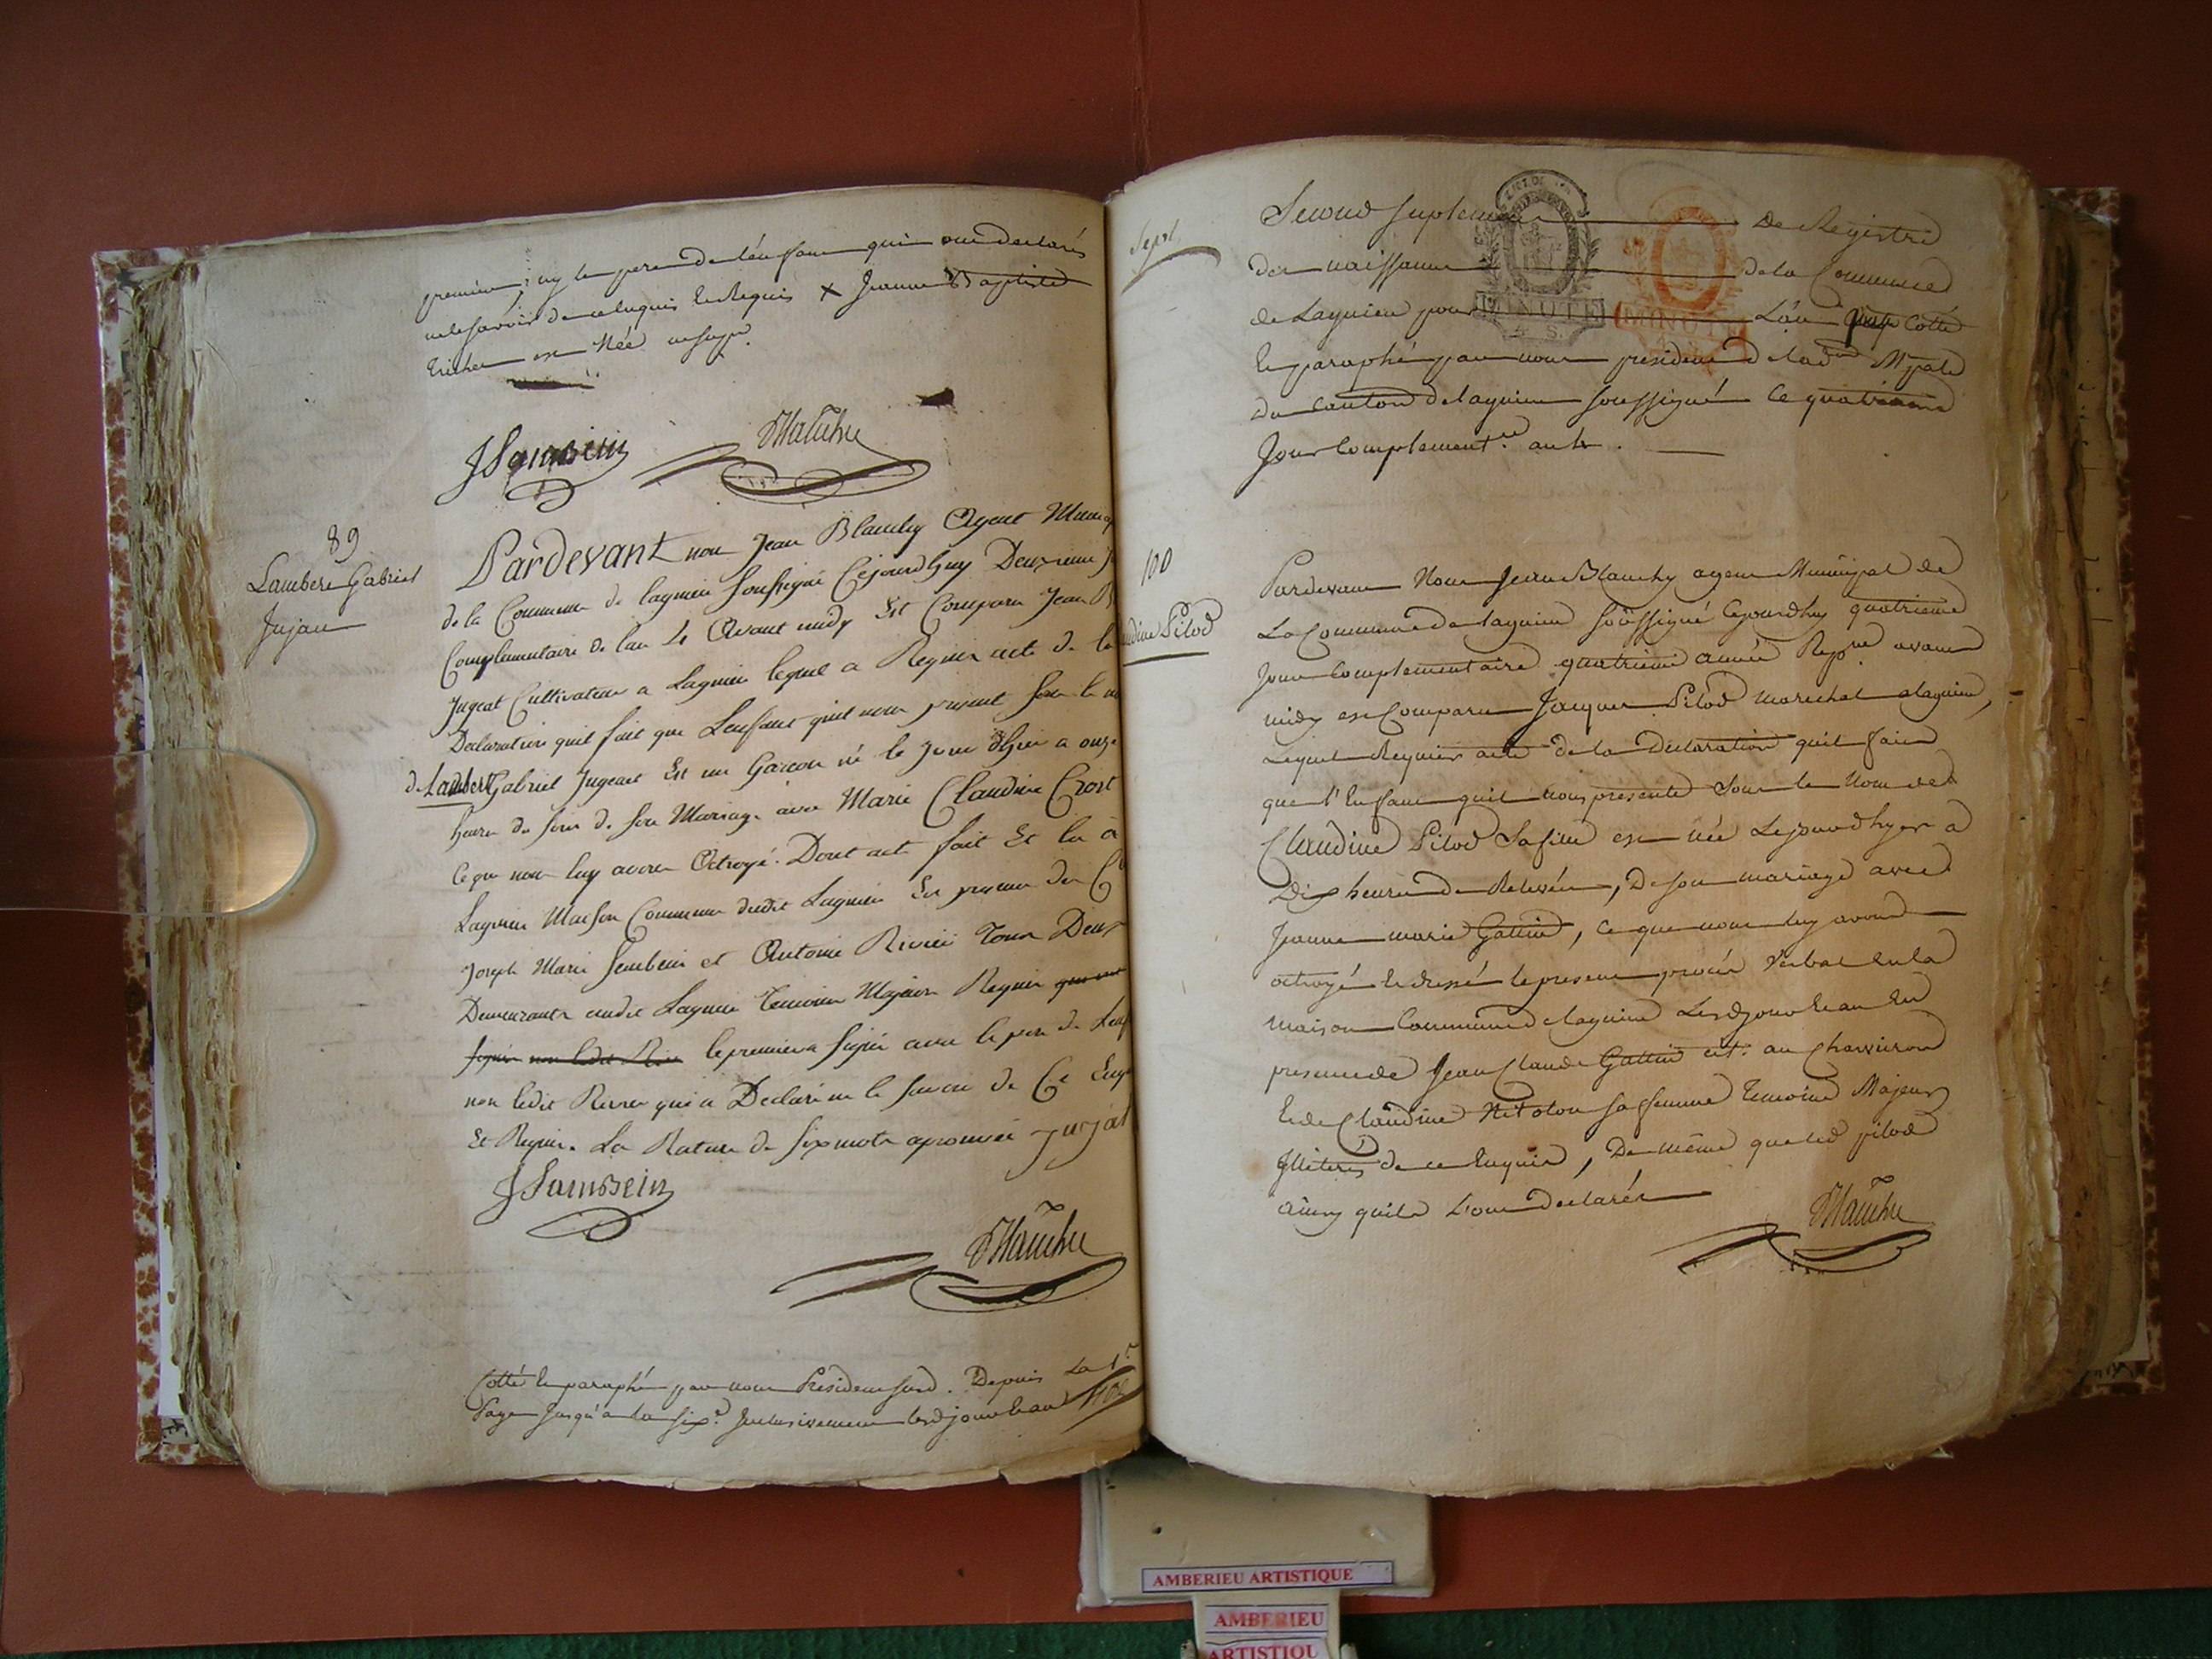 premier, ny le pere de l'enfant qui ont declarés
ne le savoir de ce Enquis et Requis x Jeanne Baptiste
est Née
JSambein
Blanchy
89
Lambert Gabriel
Jujat
Pardevant nous Jean Blanchy Agent Munic
de la Commune de lagnieu soussigné Cejourdhuy Deuxieme j
Complementaire de l'an 4e Avant midy Est Comparu Jean B
Jugeat Cultivateur a Lagnieu lequel a Requis acte de la
Declaration quil fait que Lenfant quil nous present sous le no
de Lambert Gabriel Jugeat Est un Garcon né le jour dhier a onze
heures du soir de son Mariage avec Marie Claudine Crost
Ce que nous luy avons Octroyé. Dont acte fait Et lu à
Lagnieu Maison Commune dudit Lagnieu En presence des C
Joseph Marie Sembein et Antoine Riviere Tous Deux
Demeurants audit Lagnieu Temoins Majeurs Requis qui ont
signé non ledit Riv le premier a signé avec le pere de Lenf
non ledit Rivier qui a Declaré ne le savoir de Ce Enq
Et Requis. La Rature de six mots aprouvée Jurjat
JSambein
Blanchy
Cotté et paraphé par nous Président susd. Depuis La 1re
Page Jusqu'a la six.e Inclusivement lesd jour et an
Sept.
Second suplement De Registre
des naissances de la Commune
de Lagnieu pour L'an Cotté
et paraphé par nous president de lad.on M pale
du Canton de lagnieu soussigné le quatrieme
Jour Complement.re an 4e.
MINUTE
4 S.
MINUTE
100
udine Pilod
Pardevant Nous Jean Blanchy agent Municipal de
La Commune de lagnieu soussigné Cejourdhuy quatrieme
Jour Complementaire quatrieme année Repne avant
midy est Comparu Jacques Pilod marechal a lagnieu,
Lequel Requier acte de la Declaration quil fait
que l'Enfant quil nous presente Sous le Nom de
Claudine Pilod Sa fille est née Le jour d hyer a
Dix heures de Relevée, De son mariage avec
Jeanne marie Gallin, Ce que nous luy avons
octroyé et dressé le present procès verbal en la
maison Commune de lagnieu Lesd jour et an En
presence de Jean Claude Gallin cit. au
et de Claudine sa femme Temoins Majeurs
Illiterés de ce Enquis, De même que led pilod
ainsy quils L'ont declarés
Blanchy
AMBERIEU ARTISTIQUE
AMBERIEU
ARTISTIQU